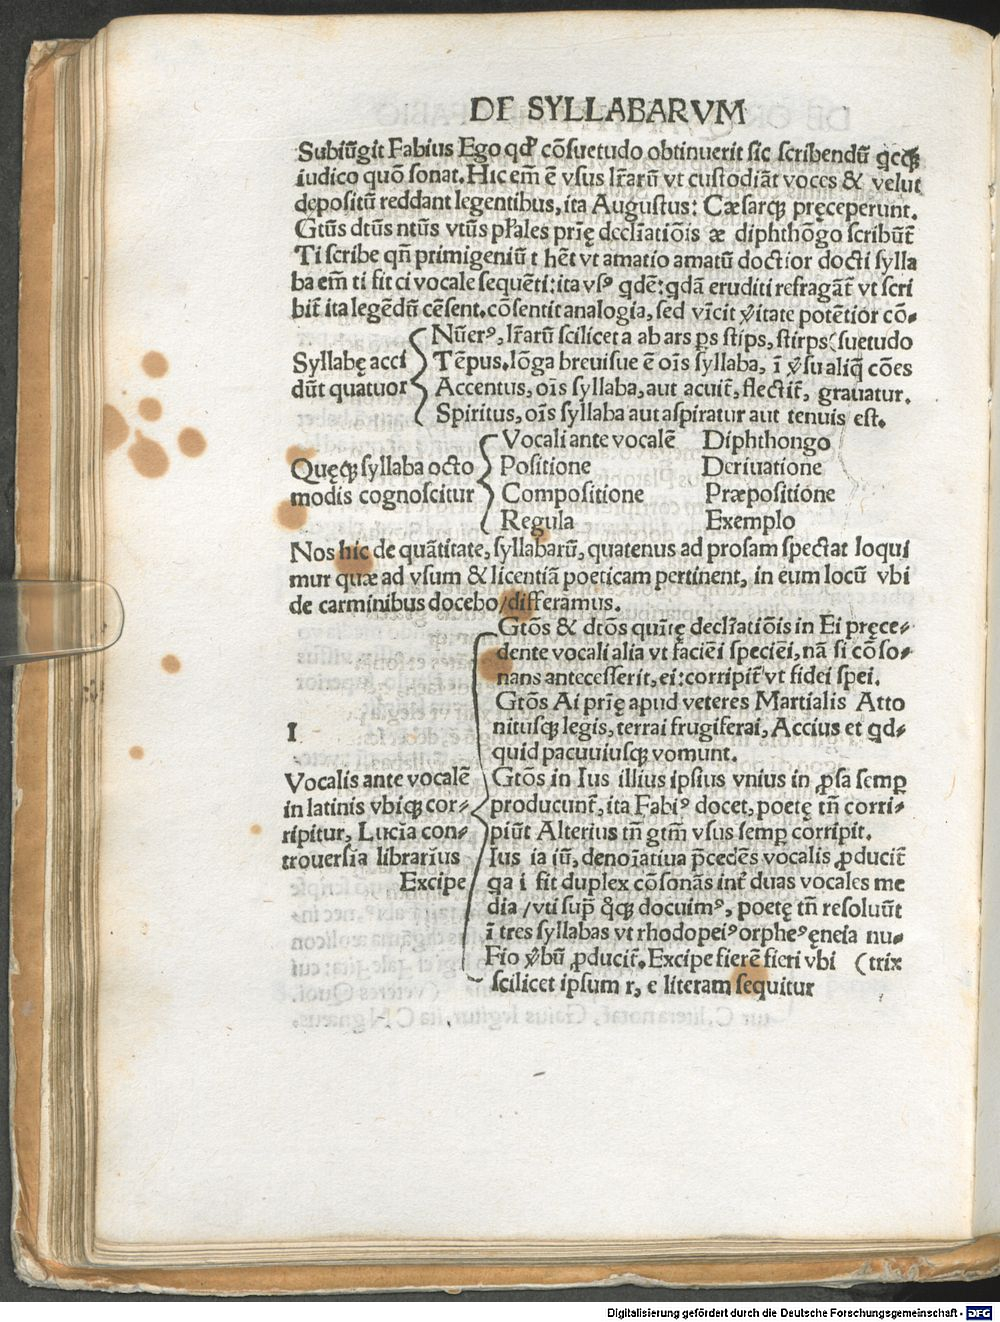 DE SYLLABARVM
Subiūgit Fabius Ego qđ cōsuetudo obtinuerit sic scribendū
iudico quō sonat. Hic em̄ ē vsus lr̄arū vt custodiāt voces & velut
depositū reddant legentibus, ita Augustus: Cæsarqꝫ pręceperunt.
Gtūs dtūs ntūs vtūs pl̄ales prię declīatiōis æ diphthōgo scribūt̄
Ti scribe qn̄ primigeniū t hēt vt amatio amatū doctior docti sylla
ba em̄ ti fit ci vocale sequēti: ita vsꝰ qdē: qdā eruditi refragāt̄ vt scri
bit̄ ita legēdū cēsent. cōsentit analogia, sed vīcit v̓itate potētior cō-
Nūerꝰ, lr̄arū scilicet a ab ars ps stips, stirps (suetudo
Syllabę acci
dūt quatuor
Tēpus. lōga breuisue ē oīs syllaba, ī v̓su aliq̄ cōes
Accentus, oīs syllaba, aut acuit̄, flectit̄, grauatur.
Spiritus, oīs syllaba aut aspiratur aut tenuis est.
Quęqꝫ syllaba octo
modis cognoscitur
Vocali ante vocalē Diphthongo
Positione Deriuatione
Compositione Præpositione
Regula Exemplo
Nos hic de quātitate, syllabarū, quatenus ad prosam spectat loqui
mur quæ ad vsum & licentiā poeticam pertinent, in eum locū vbi
de carminibus docebo/differamus.
I
Vocalis ante vocalē
in latinis vbiqꝫ cor-
ripitur, Lucia con-
trouersia librarius
Excipe
Gtōs & dtōs quītę declīatiōis in Ei pręce-
dente vocali alia vt faciēi speciēi, nā si cōso-
nans antecesserit, ei: corripit̄ vt fidei spei.
Gtōs Ai prię apud veteres Martialis Atto
nitusqꝫ legis, terrai frugiferai, Accius et qd-
quid pacuuiusqꝫ vomunt.
Gtōs in Ius illius ipsius vnius in ꝓsa semꝑ
producunt̄, ita Fabiꝰ docet, poetę tn̄ corri-
piūt Alterius tn̄ gtm̄ vsus semꝑ corripit.
Ius ia iū, denoīatiua p̄cedēs vocalis ꝓducit̄
qa i fit duplex cōsonās int̄ duas vocales me
dia/vti sup̄ docuimꝰ, poetę tn̄ resoluūt
ī tres syllabas vt rhodopeiꝰ orpheꝰ ęneia nu-
Fio v̓bū ꝓducit̄. Excipe fierē fieri vbi (trix
scilicet ipsum r, e literam sequitur
Digitalisierung gefördert durch die Deutsche Forschungsgemeinschaft - DFG